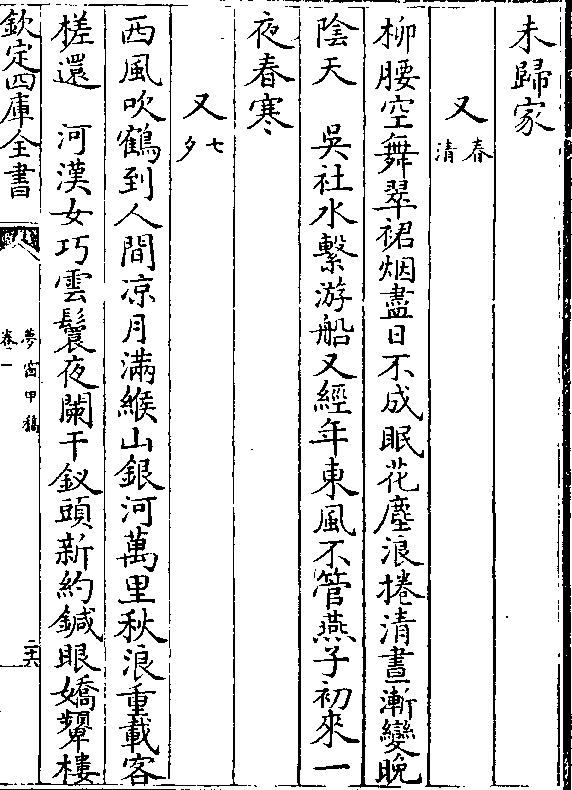 未歸家
又 春清
柳腰空舞翠裙烟盡日不成眠花塵浪捲清晝漸變晚
陰天　吳社水繫游船又經年東風不管燕子初來一
夜春寒
又 七夕
西風吹鶴到人間凉月滿緱山銀河萬里秋浪重載客
槎還　河漢女巧雲鬟夜闌干釵頭新約鍼眼嬌顰樓
欽定四庫全書
夢窗甲稿
卷一
二六